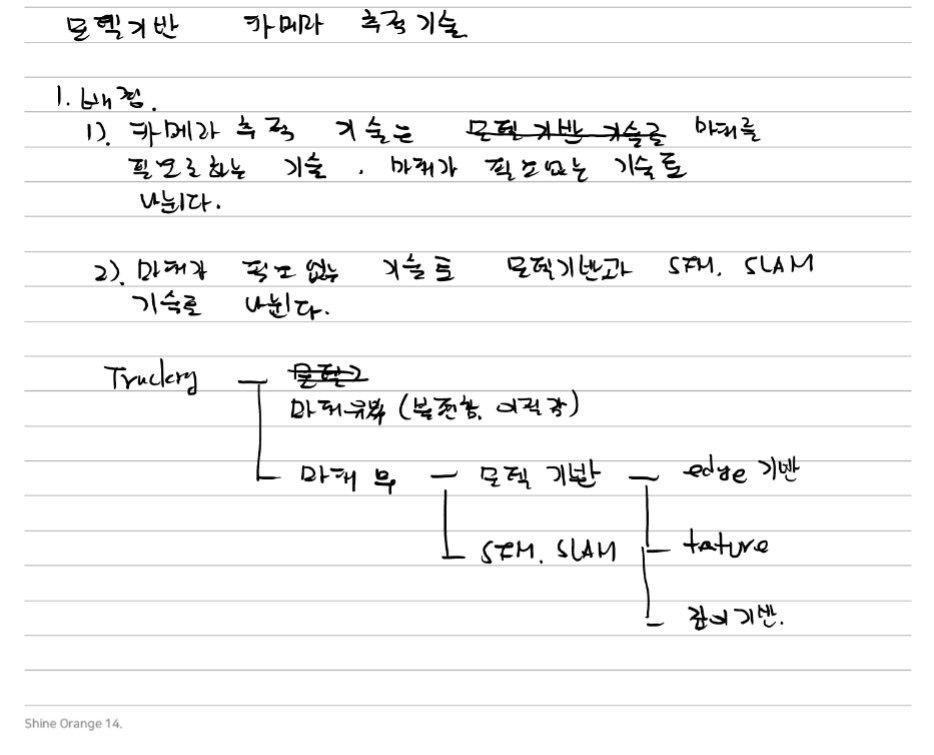 모델기반 카메라 추적 기술
1. 배점.
1). 카메라 추적 기술는 모델 기반 기술로 마커를
필요로하는 기술, 마커가 필요없는 기술로
나뉜다.
2). 마커가 필요 없는 기술로 모델기반과 SFM, SLAM
기술로 나뉜다.
Trucking
마커유
마커 무 모델 기반 edge 기반
SFM, SLAM tature
깊이기반.
Shine Orange 14.